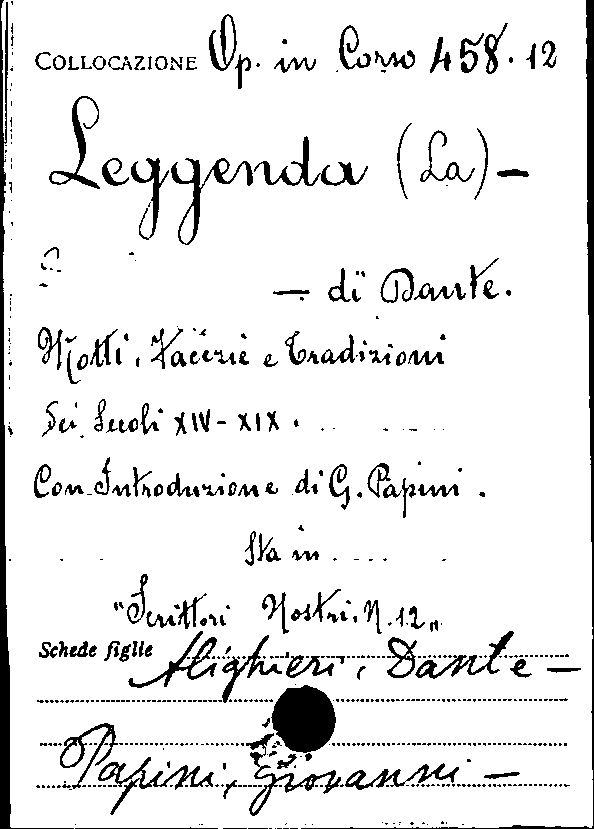 COLLOCAZIONE Op. in Corso 458.12
Leggenda (La) —
— di Dante.
Motti, Facezie e Tradizioni
dei Secoli XIV - XIX.
Con Introduzione di G. Papini.
Sta in
"Scrittori Nostri. N. 12"
Schede figlie Alighieri, Dante —
Papini, Giovanni —